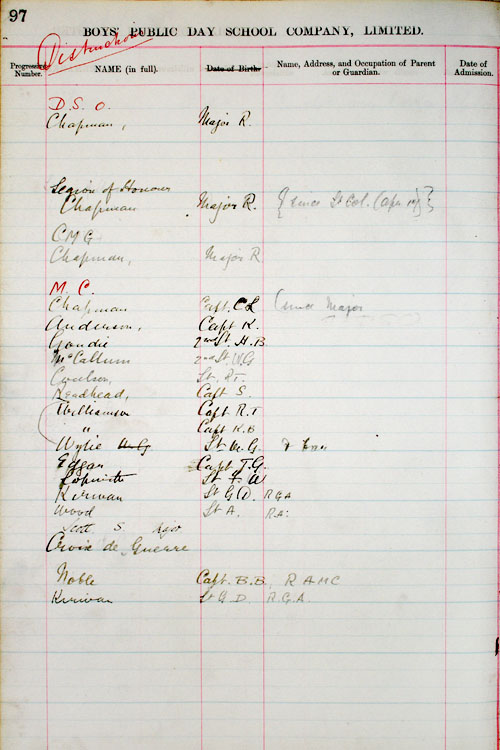 97
BOYS' PUBLIC DAY SCHOOL COMPANY, LIMITED.
Distinctions
Progressive Number. NAME (in full). Date of Birth. Name, Address, and Occupation of Parent or Guardian. Date of Admission.
D. S. O.
Chapman, Major R.
Legion of Honour
Chapman Major R. { since Lt Col. }
C M G
Chapman, Major R.
M. C.
Chapman Capt. C L (since Major
Anderson, Capt K.
Goudie 2nd Lt. H. B
McCallum 2nd Lt. W. G
Coulson, Lt.
Readhead, Capt S.
Williamson Capt R. T
" Capt K B
Wylie W. G Lt W. G
Edgar Capt T. G.
Lt F. W
Kirwan Lt G D. R G A
Wood Lt A. R A.
Scott S Major
Croix de Guerre
Noble Capt. B. B. R A M C
Kirwan Lt G. D. R. G. A